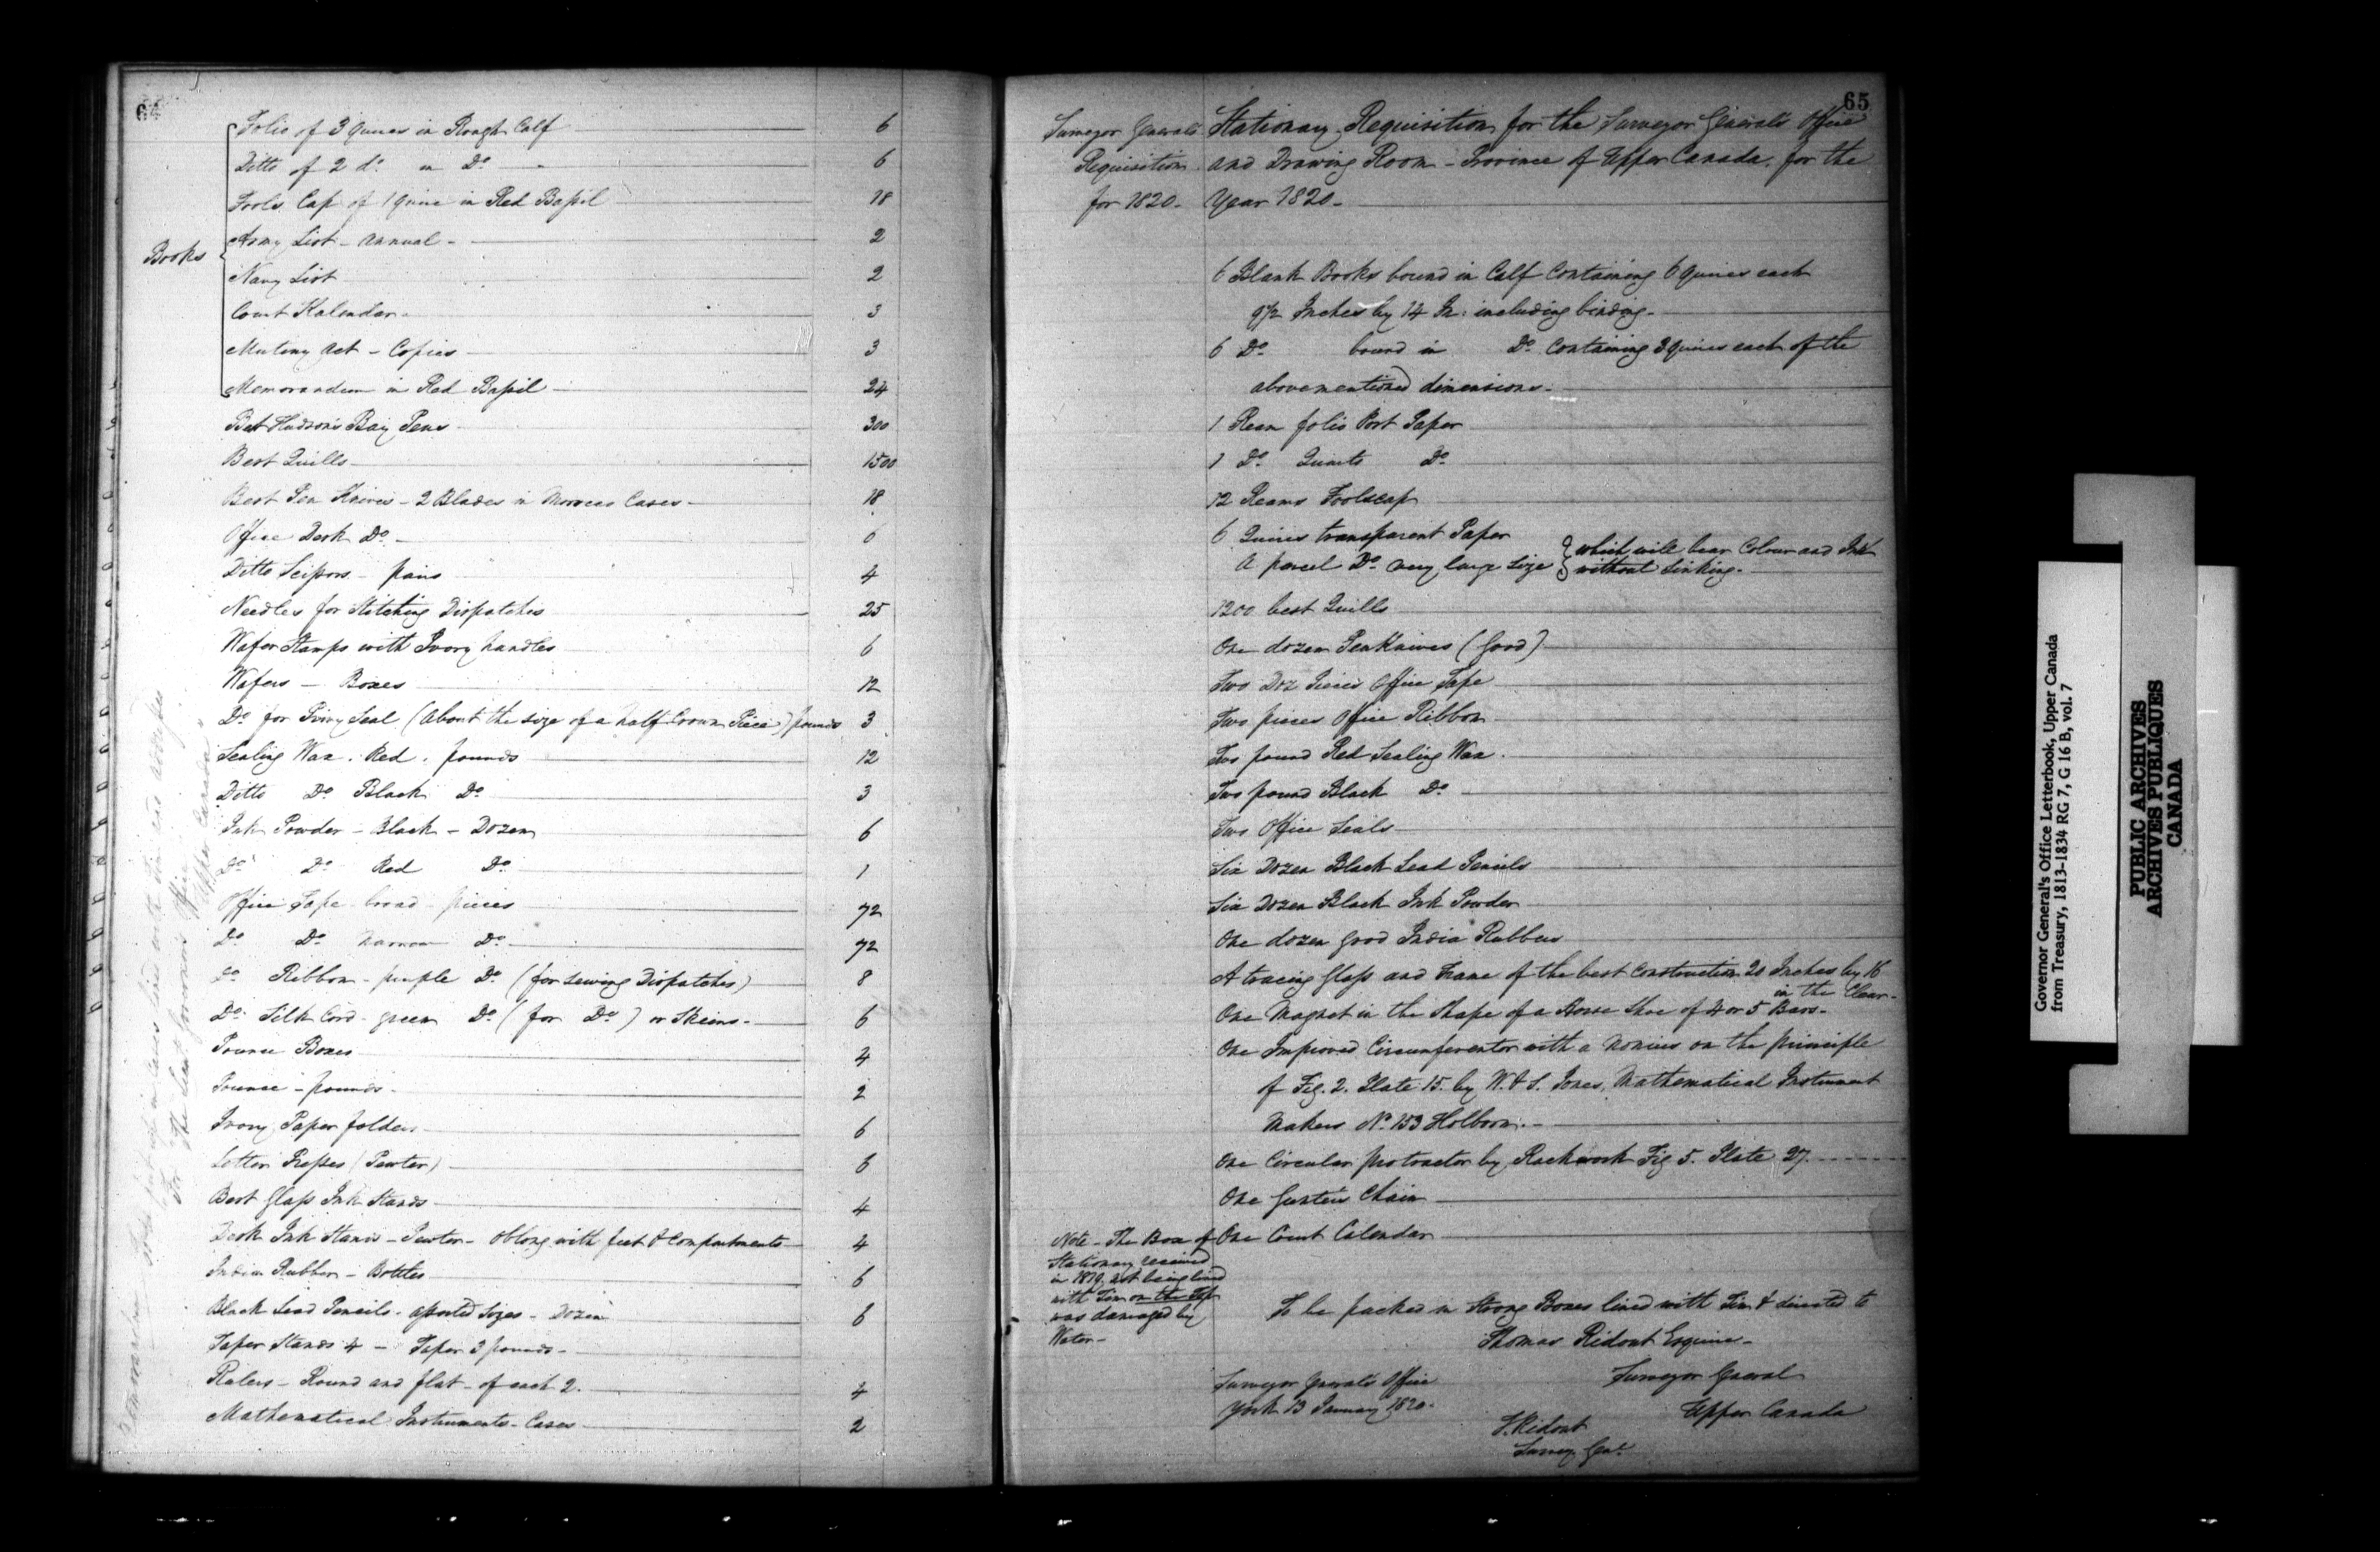 64
Books
Folio of 3 Quires in Rough Calf 6
Ditto of 2 do. in Do. 6
Fools Cap of 1 Quire in Red Bassil 18
Army List - annual - 2
Navy List 2
Court Kalendar - 3
Mutiny Act - Copies 3
Memorandum in Red Bassil 24
Best Hudson's Bay Pens 300
Best Quills 1500
Best Pen Knives - 2 Blades in Morocco Cases - 18
Office Desk Do. 6
Ditto Scissors - pairs 4
Needles for Stitching Dispatches 25
Wafer Stamps with Ivory handles 6
Wafers - Boxes 12
Do. for Privy Seal (About the size of a half Crown Piece) pounds 3
Sealing Wax. Red. pounds 12
Ditto Do. Black Do. 3
Ink Powder - Black - Dozen 6
Do. Do. Red Do. 1
Office Tape - broad - pieces 72
Do. Do. Narrow Do. 72
Do. Ribbon - purple Do. (for sewing Dispatches) 8
Do. Silk Cord - green Do. (for Do.) or Skeins - 6
Pounce Boxes 4
Pounce - pounds - 2
Ivory Paper folders 6
Letter Presses (Pewter) 6
Best Glass Ink Stands 4
Desk Ink Stands - Pewter - Oblong with feet & Compartments 4
India Rubber - Bottles 6
Black Lead Pencils - assorted Sizes - Dozen 6
Taper Stands 4 - Taper 3 pounds -
Rulers - Round and flat - of each 2. 4
Mathematical Instruments - Cases 2
in Cases lined with Tin and addressed
For The Lieut Governor's Office
Upper Canada
65
Surveyor General's
Requisition
for 1820 -
Stationary Requisition for the Surveyor General's Office
and Drawing Room - Province of Upper Canada, for the
Year 1820 -
6 Blank Books bound in Calf Containing 6 Quires each
9 1/2 Inches by 14 In: including binding -
6 Do. bound in Do. Containing 3 Quires each of the
abovementioned dimensions -
1 Ream folio Post Paper
1 Do. Quarto Do.
12 Reams Foolscap
6 Quires transparent Paper
A parcel Do. very large Size
which will bear Colour and Ink
without Sinking -
1200 best Quills
One dozen Penknives (Good)
Two Doz Pieces Office Tape
Two pieces Office Ribbon
Two pound Red Sealing Wax.
Two pound Black Do.
Two Office Seals
Six Dozen Black Lead Pencils
Six Dozen Black Ink Powder
One dozen good India Rubbers
A tracing Glass and Frame of the best Construction 20 Inches by 16
in the Clear -
One Magnet in the Shape of a Horse Shoe of 4 or 5 Bars -
One Improved Circumferentor with a Nonius on the principle
of Fig. 2. Plate 15. by W. & S. Jones, Mathematical Instrument
Makers No. 153 Holborn -
One Circular protractor by Rackwork Fig 5. Plate 27.
One Gunter's Chain
One Court Calendar
Note - The Box of
Stationary received
in 1819. not being lined
with Tin on the Top
was damaged by
Water -
To be packed in Strong Boxes lined with Tin & directed to
Thomas Ridout Esquire -
Surveyor General
Upper Canada
Surveyor General's Office
York 13 January 1820.
T. Ridout
Survey. Genl.
Governor General's Office Letterbook, Upper Canada
from Treasury, 1813-1834 RG 7, G 16 B, vol. 7
PUBLIC ARCHIVES
ARCHIVES PUBLIQUES
CANADA